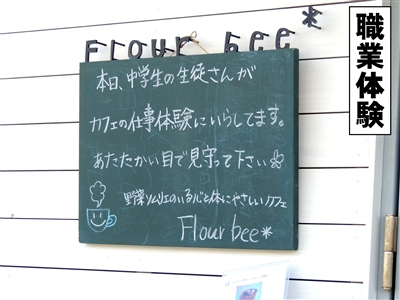 Flour bee*
職業体験
本日、中学生の生徒さんが
カフェの仕事体験にいらしてます。
あたたかい目で見守って下さい
野菜ソムリエのいる心と体にやさしいカフェ
Flour bee*